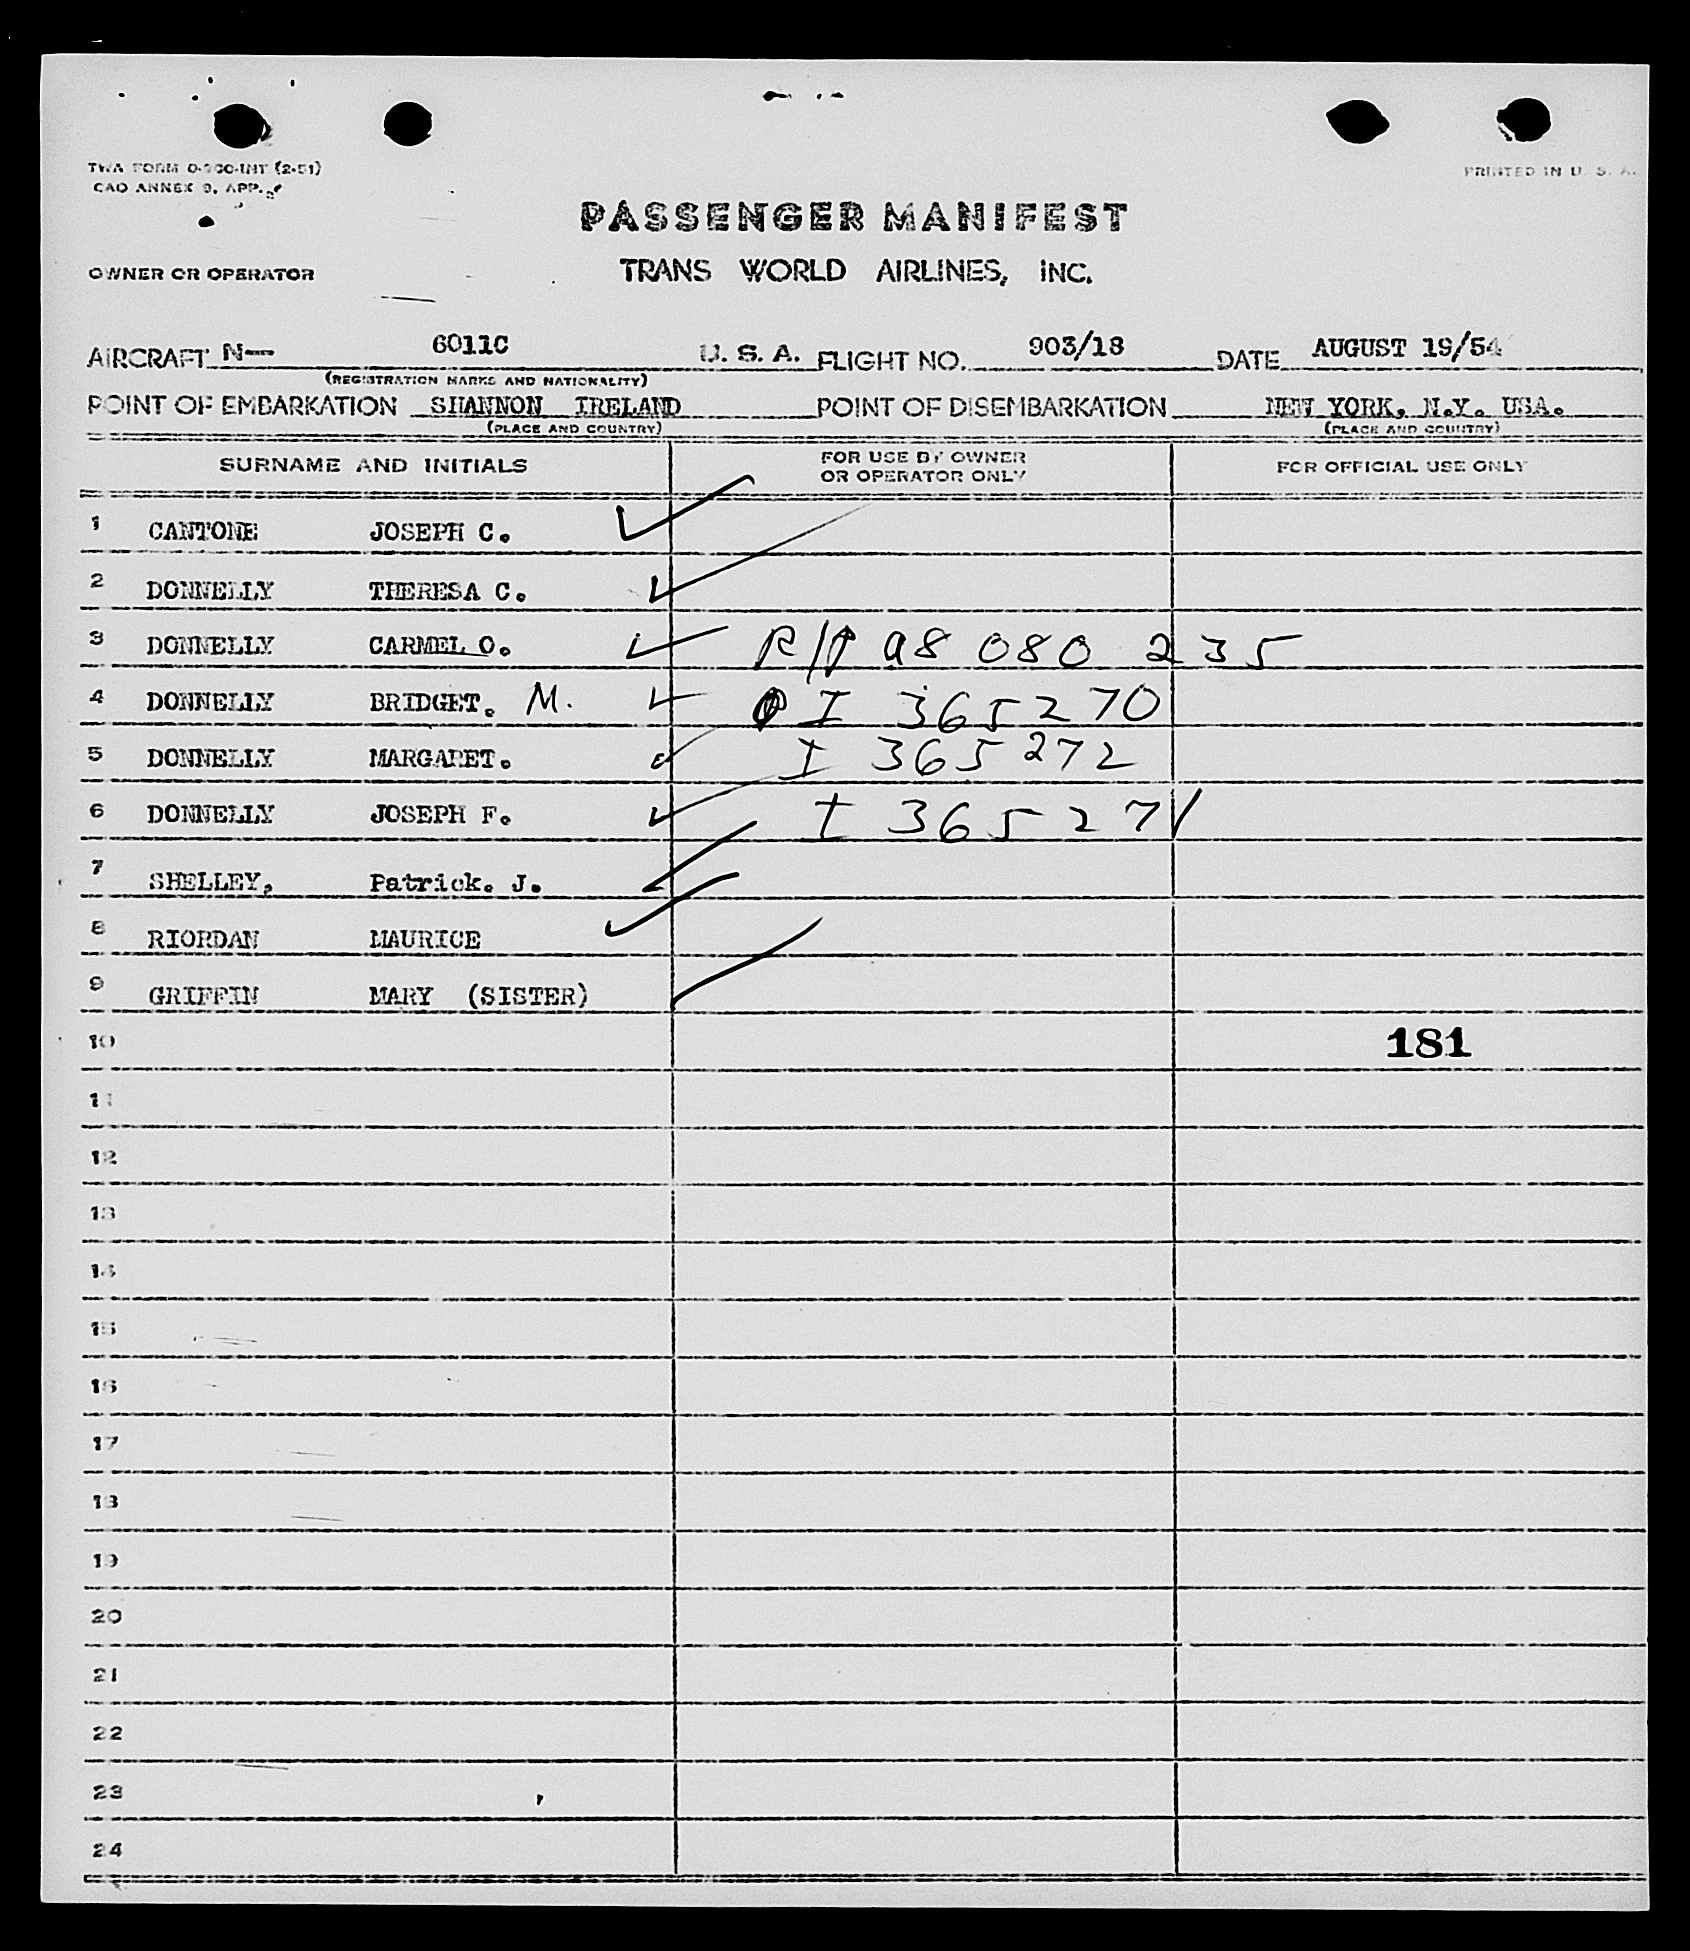 TWA FORM O-900-INT (2-51)
CAO ANNEX 9, APP.
PRINTED IN U. S. A.
PASSENGER MANIFEST
OWNER OR OPERATOR
TRANS WORLD AIRLINES, INC.
AIRCRAFT N— 6011C U. S. A. FLIGHT NO. 903/18 DATE AUGUST 19/54
(REGISTRATION MARKS AND NATIONALITY)
POINT OF EMBARKATION SHANNON IRELAND POINT OF DISEMBARKATION NEW YORK, N.Y. USA.
(PLACE AND COUNTRY) (PLACE AND COUNTRY)
SURNAME AND INITIALS FOR USE BY OWNER OR OPERATOR ONLY FOR OFFICIAL USE ONLY
1 CANTONE JOSEPH C.
2 DONNELLY THERESA C.
3 DONNELLY CARMEL O. R/P A8 080 235
4 DONNELLY BRIDGET. M. I 365270
5 DONNELLY MARGARET. I 365272
6 DONNELLY JOSEPH F. I 365271
7 SHELLEY, Patrick. J.
8 RIORDAN MAURICE
9 GRIFFIN MARY (SISTER)
10 181
11
12
13
14
15
16
17
18
19
20
21
22
23
24